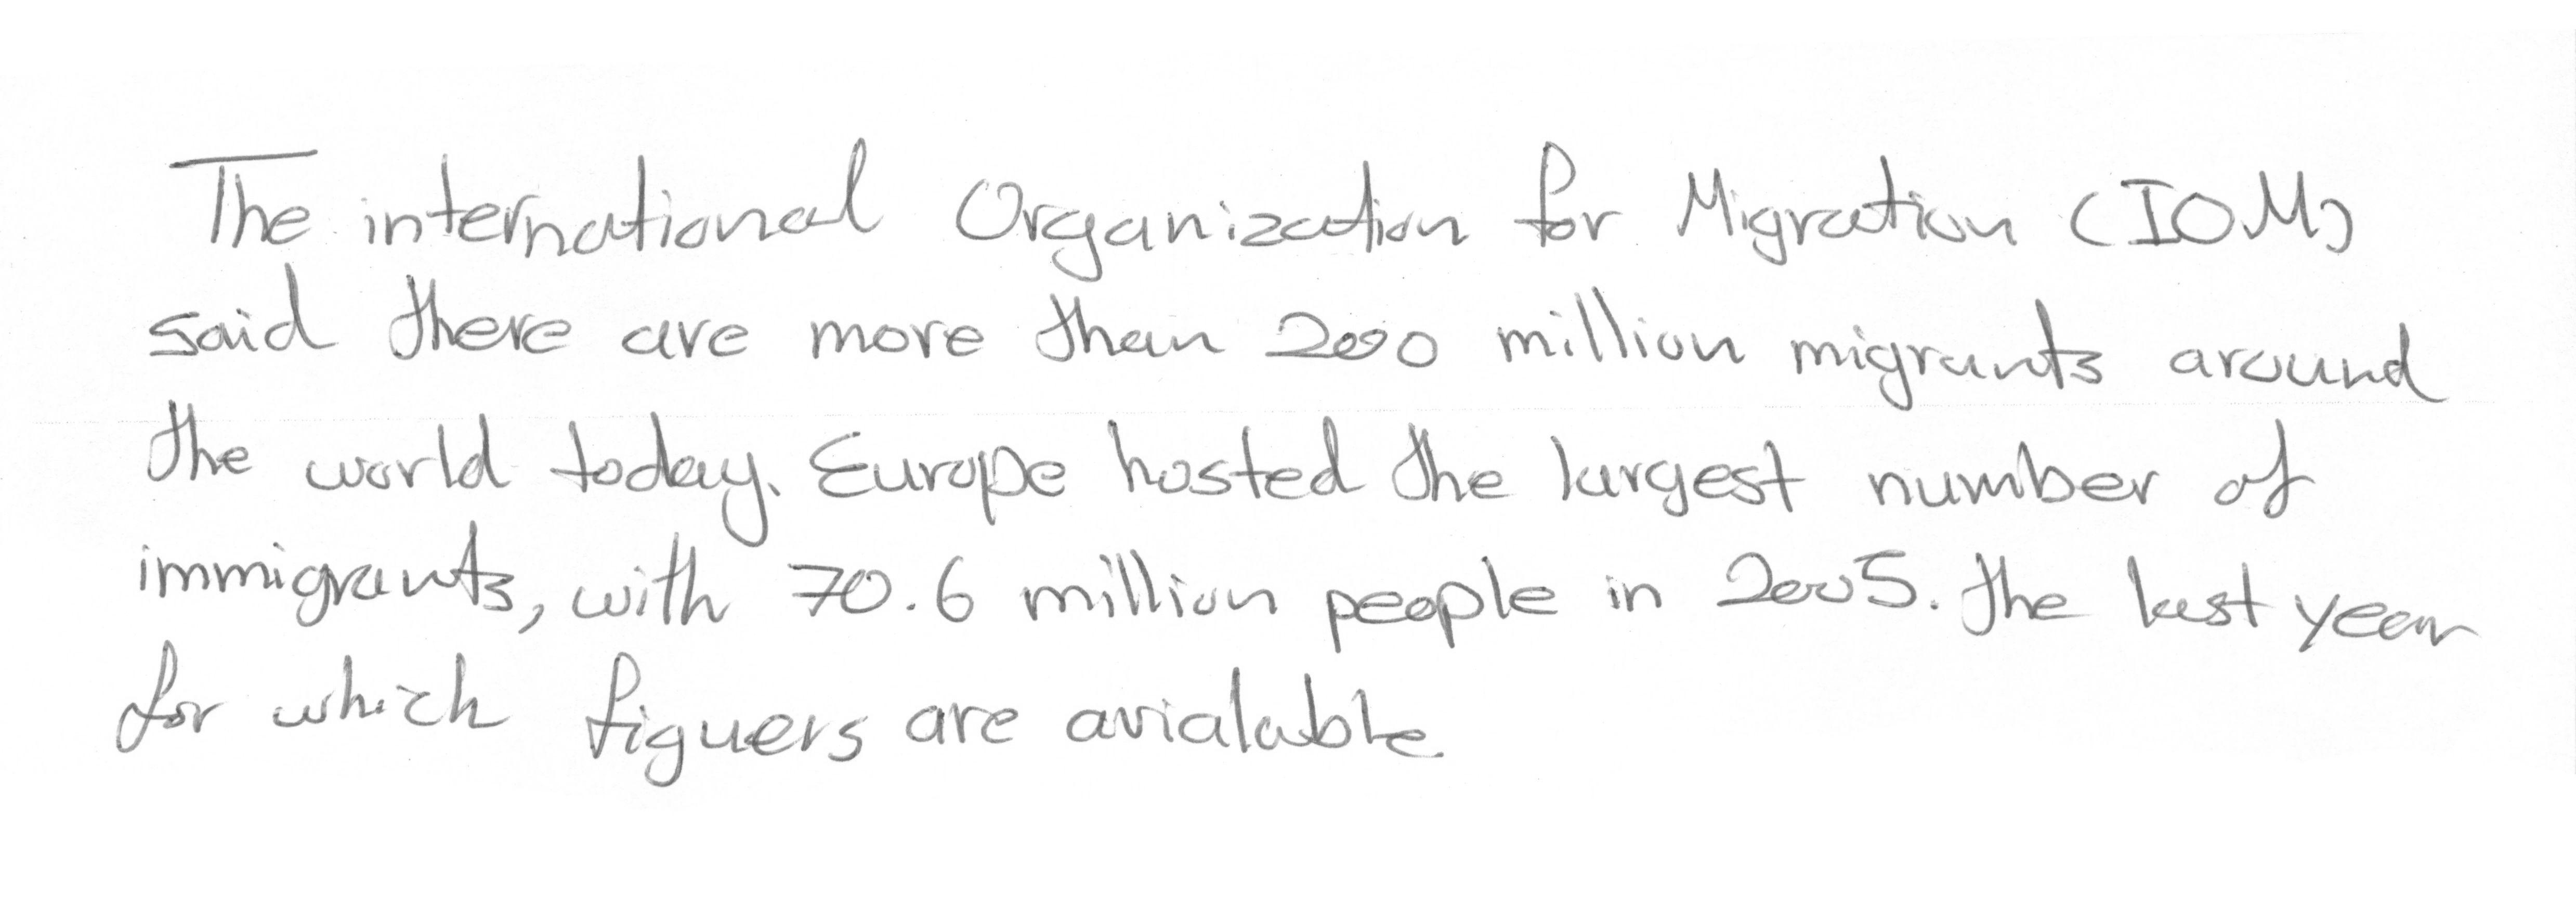 The international Organization for Migration (IOM)
said there are more than 200 million migrants around
the world today. Europe hosted the largest number of
immigrants, with 70.6 million people in 2005. the last year
for which figuers are avialable